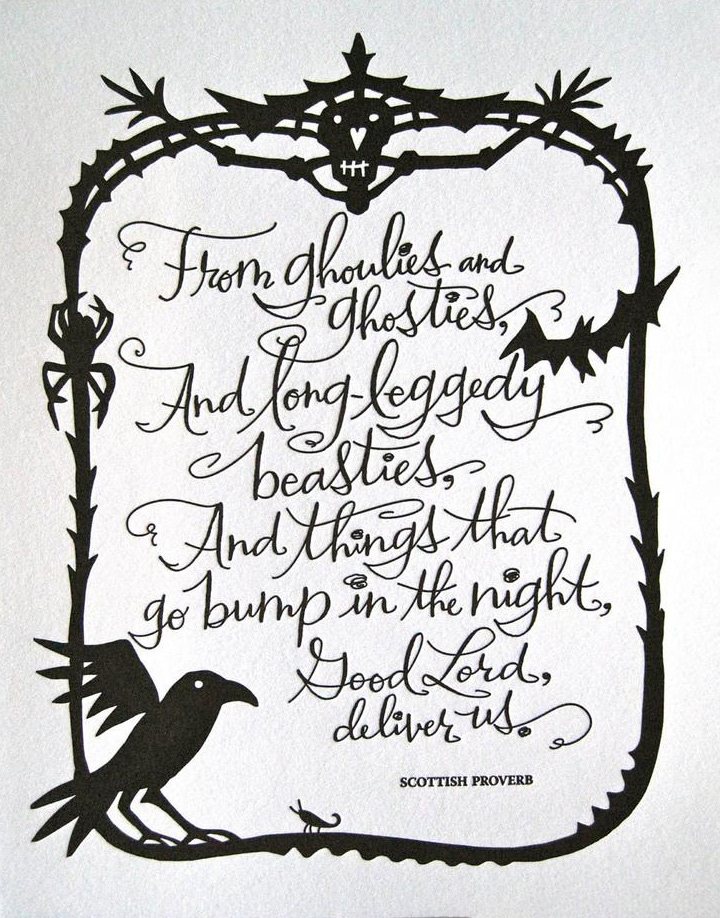 From ghoulies and
ghosties,
And long-leggedy
beasties,
And things that
go bump in the night,
Good Lord,
deliver us.
SCOTTISH PROVERB